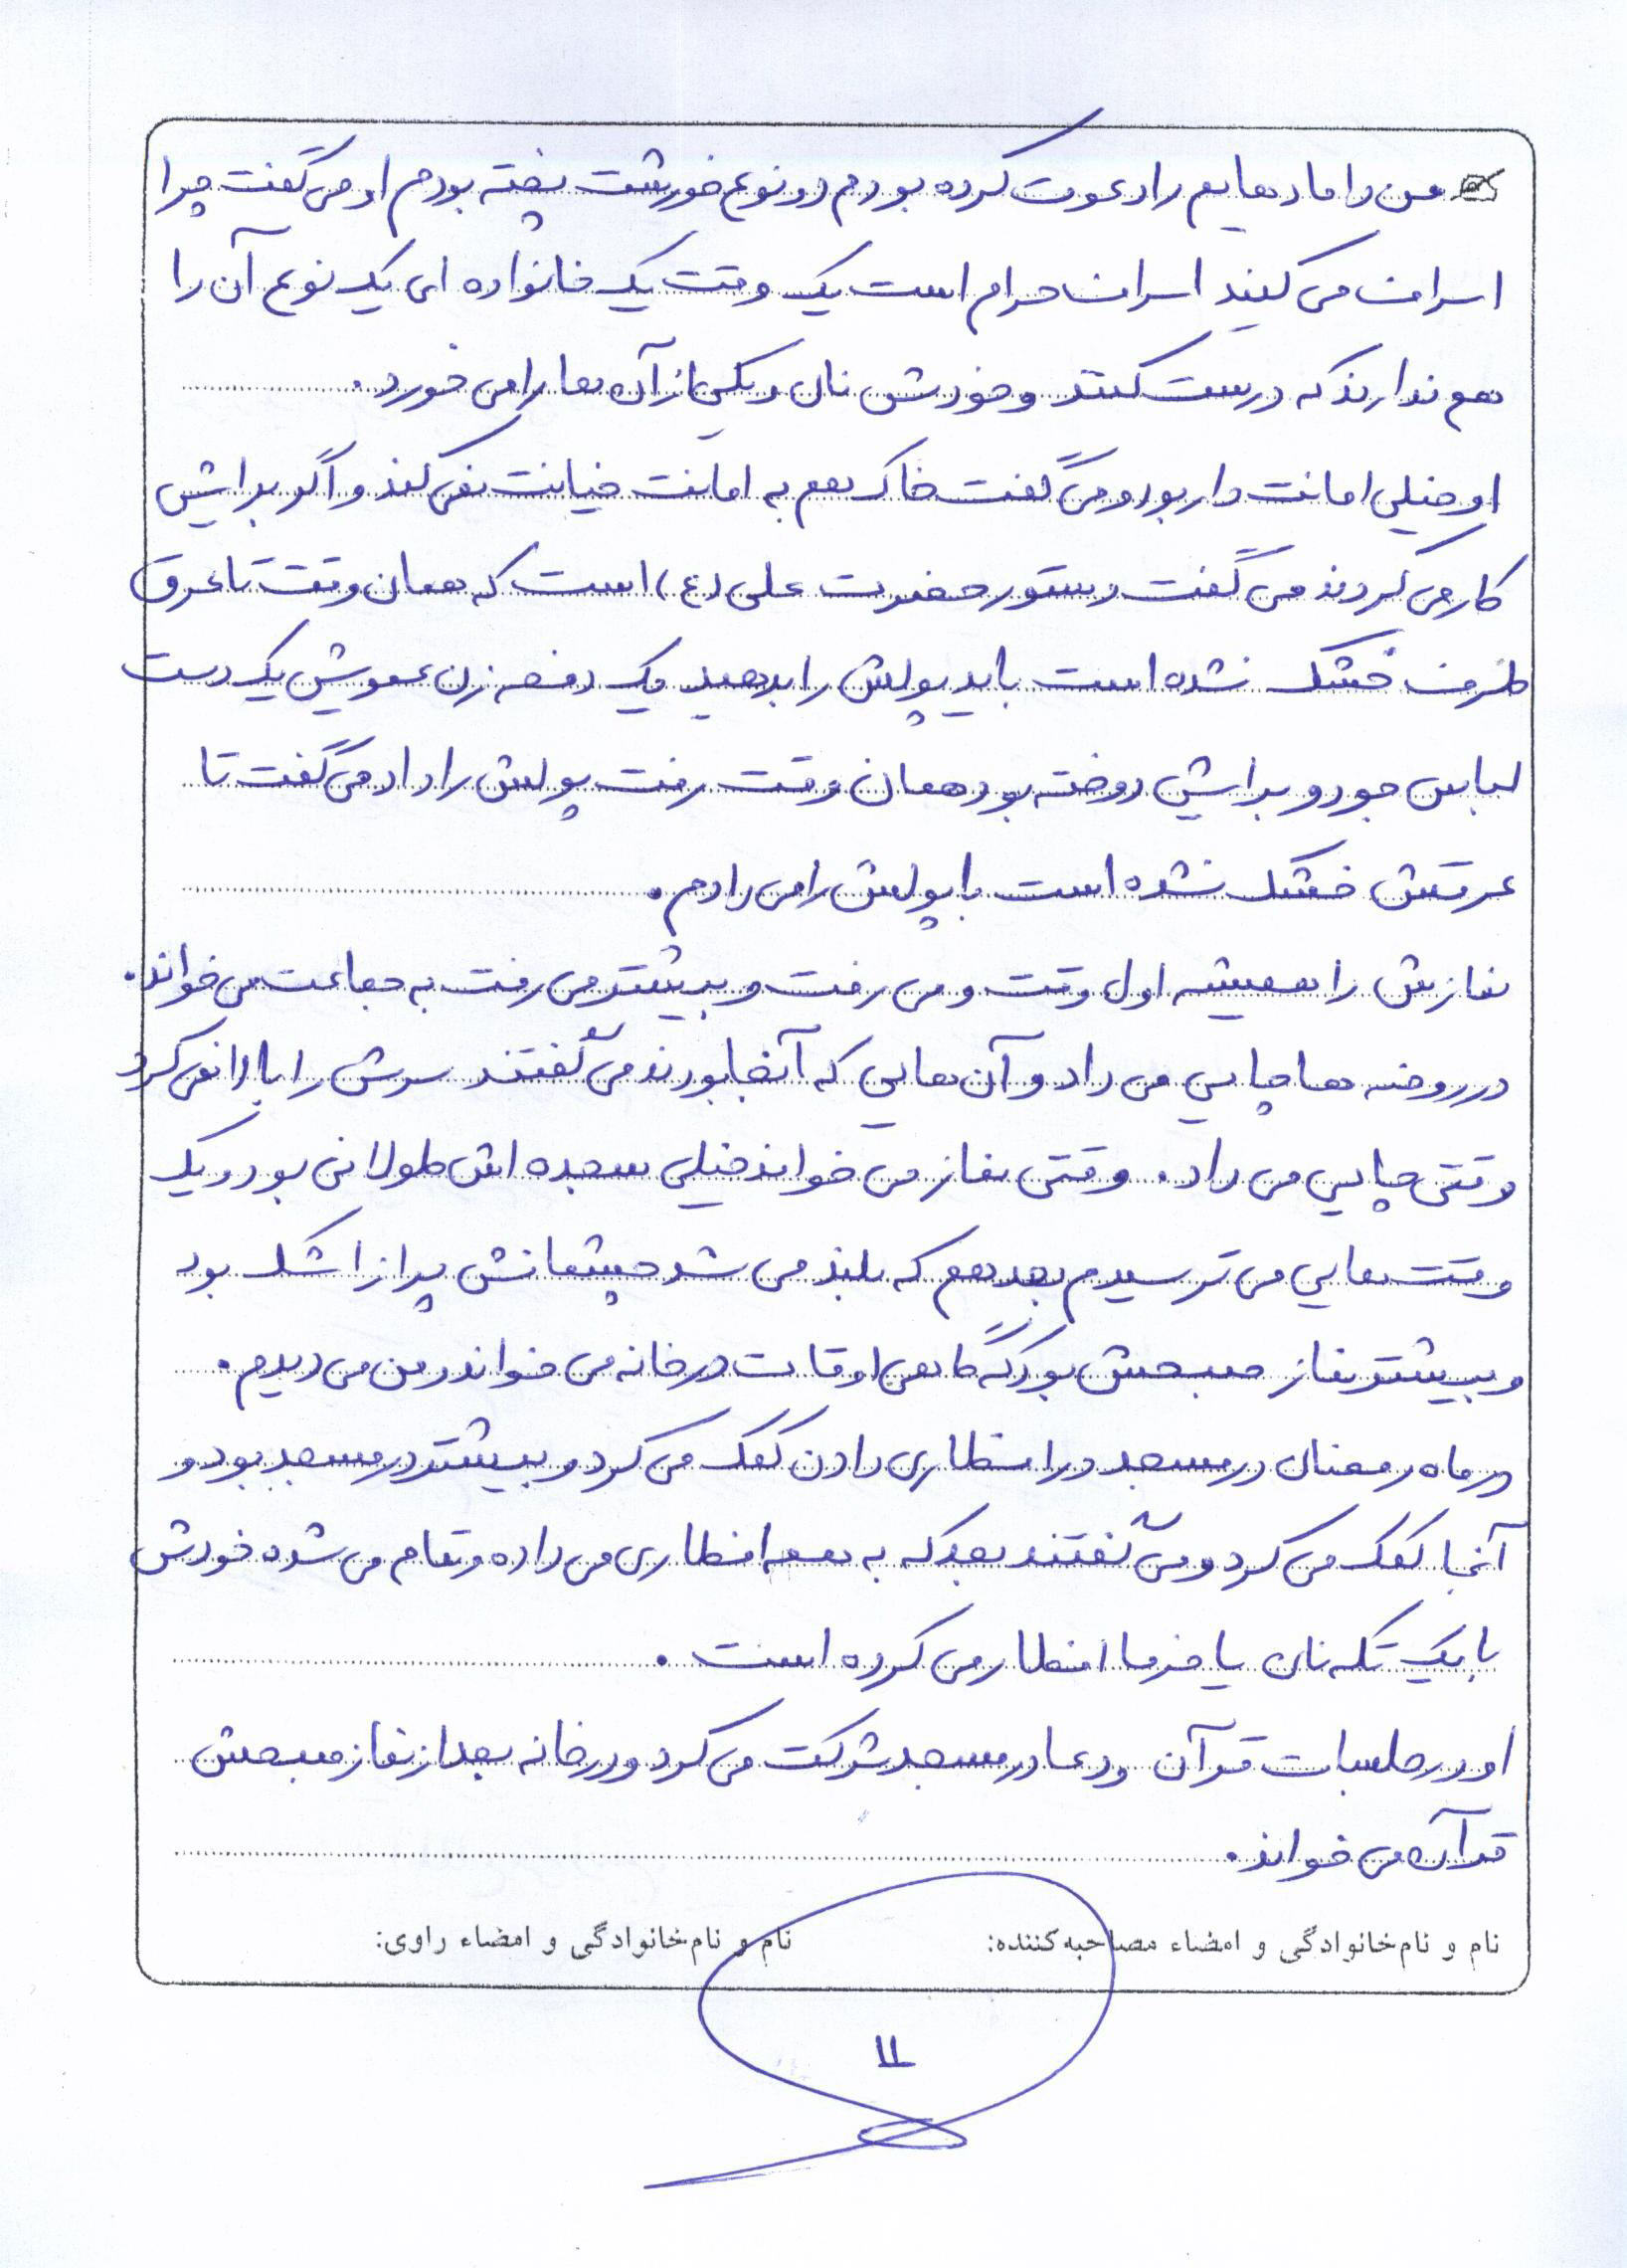 من دامادهایم را دعوت کرده بودم دو نوع خورشت پخته بودم او می گفت چرا
اسراف می کنید اسراف حرام است یک وقت یک خانواده ای یک نوع آن را
هم ندارند که درست کنند و خودش نان و یکی از آن ها را می خورد.
او خیلی امانت دار بود و می گفت خاک هم به امانت خیانت نمی کند و اگر برایش
کار می کردند می گفت دستور حضرت علی (ع) است که همان وقت تا عرق
طرف خشک نشده است باید پولش را بدهید یک دفعه زن عمویش یک دست
لباس جودو برایش دوخته بود همان وقت رفت پولش را داد می گفت تا
عرقش خشک نشده است با پولش را می دادم.
نمازش را همیشه اول وقت و می رفت و بیشتر می رفت به جماعت می خواند.
در روضه ها چایی می داد و آن هایی که آنجا بودند می گفتند سرش را بالا نمی کرد
وقتی چایی می داد. وقتی نماز می خواند خیلی سجده اش طولانی بود و یک
وقت هایی می ترسیدم بعد هم که بلند می شد چشمانش پر از اشک بود
و بیشتر نماز صبحش بود که گاهی اوقات در خانه می خواند و من می دیدم.
در ماه رمضان در مسجد در افطاری دادن کمک می کرد و بیشتر در مسجد بود و
آنجا کمک می کرد و می گفتند بعد که به همه افطاری می داده و تمام می شده خودش
با یک تکه نان یا خرما افطار می کرده است.
او در جلسات قرآن و دعا در مسجد شرکت می کرد و در خانه بعد از نماز صبحش
قرآن می خواند.
نام و نام خانوادگی و امضاء مصاحبه کننده: نام و نام خانوادگی و امضاء راوی:
۱۱